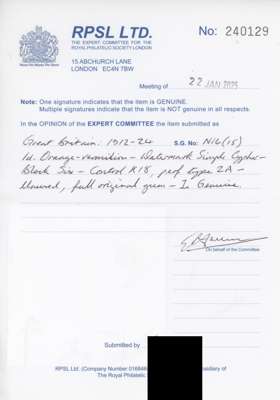 RPSL LTD.
THE EXPERT COMMITTEE FOR THE
ROYAL PHILATELIC SOCIETY LONDON
No: 240129
15 ABCHURCH LANE
LONDON EC4N 7BW
Meeting of 22 JAN 2025
Note: One signature indicates that the item is GENUINE.
Multiple signatures indicate that the item is NOT genuine in all respects.
In the OPINION of the EXPERT COMMITTEE the item submitted as
Great Britain: 1912-24 S.G. No: N16(15)
1d. Orange-vermilion - Watermark Simple Cypher -
Block Six - Control K18, perf type 2A -
Unused, full original gum - Is Genuine.
On behalf of the Committee
Submitted by
RPSL Ltd. (Company Number
The Royal Philatelic
sidiary of